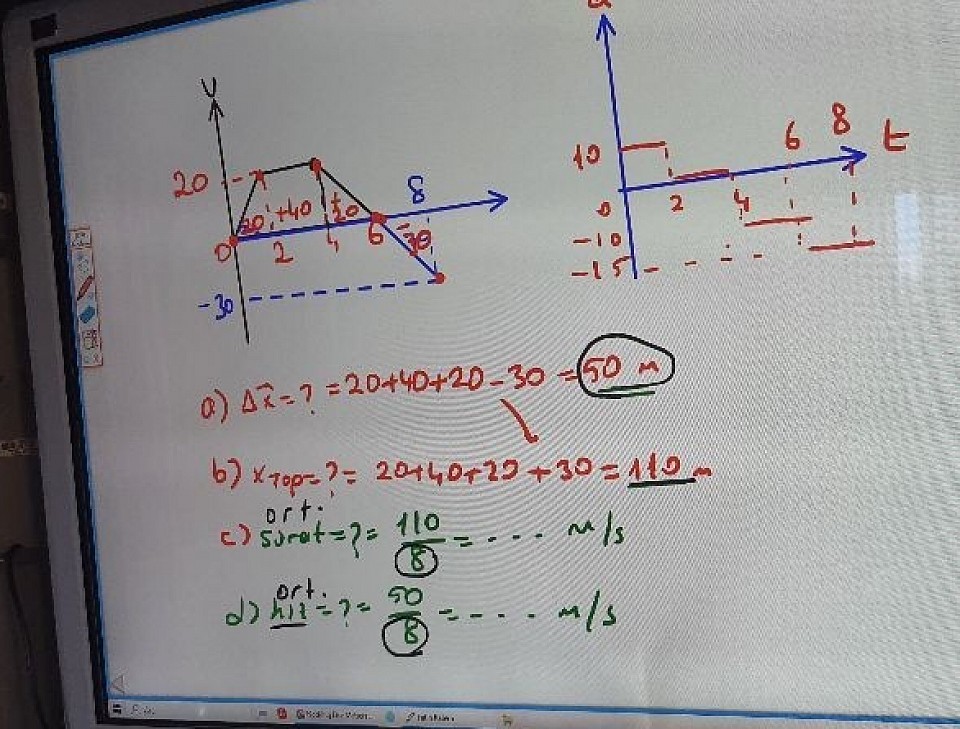 v
20
20 +40 +20 -30
0 2 4 6 8
-30
a
10
0
-10
-15
2 4 6 8 t
a) Δx⃗=? =20+40+20-30 =50 m
b) xTop=?= 20+40+20+30=110 m
ort.
c) sürat=?= 110/8 =---- m/s
ort.
d) hız=?= 50/8 =---- m/s